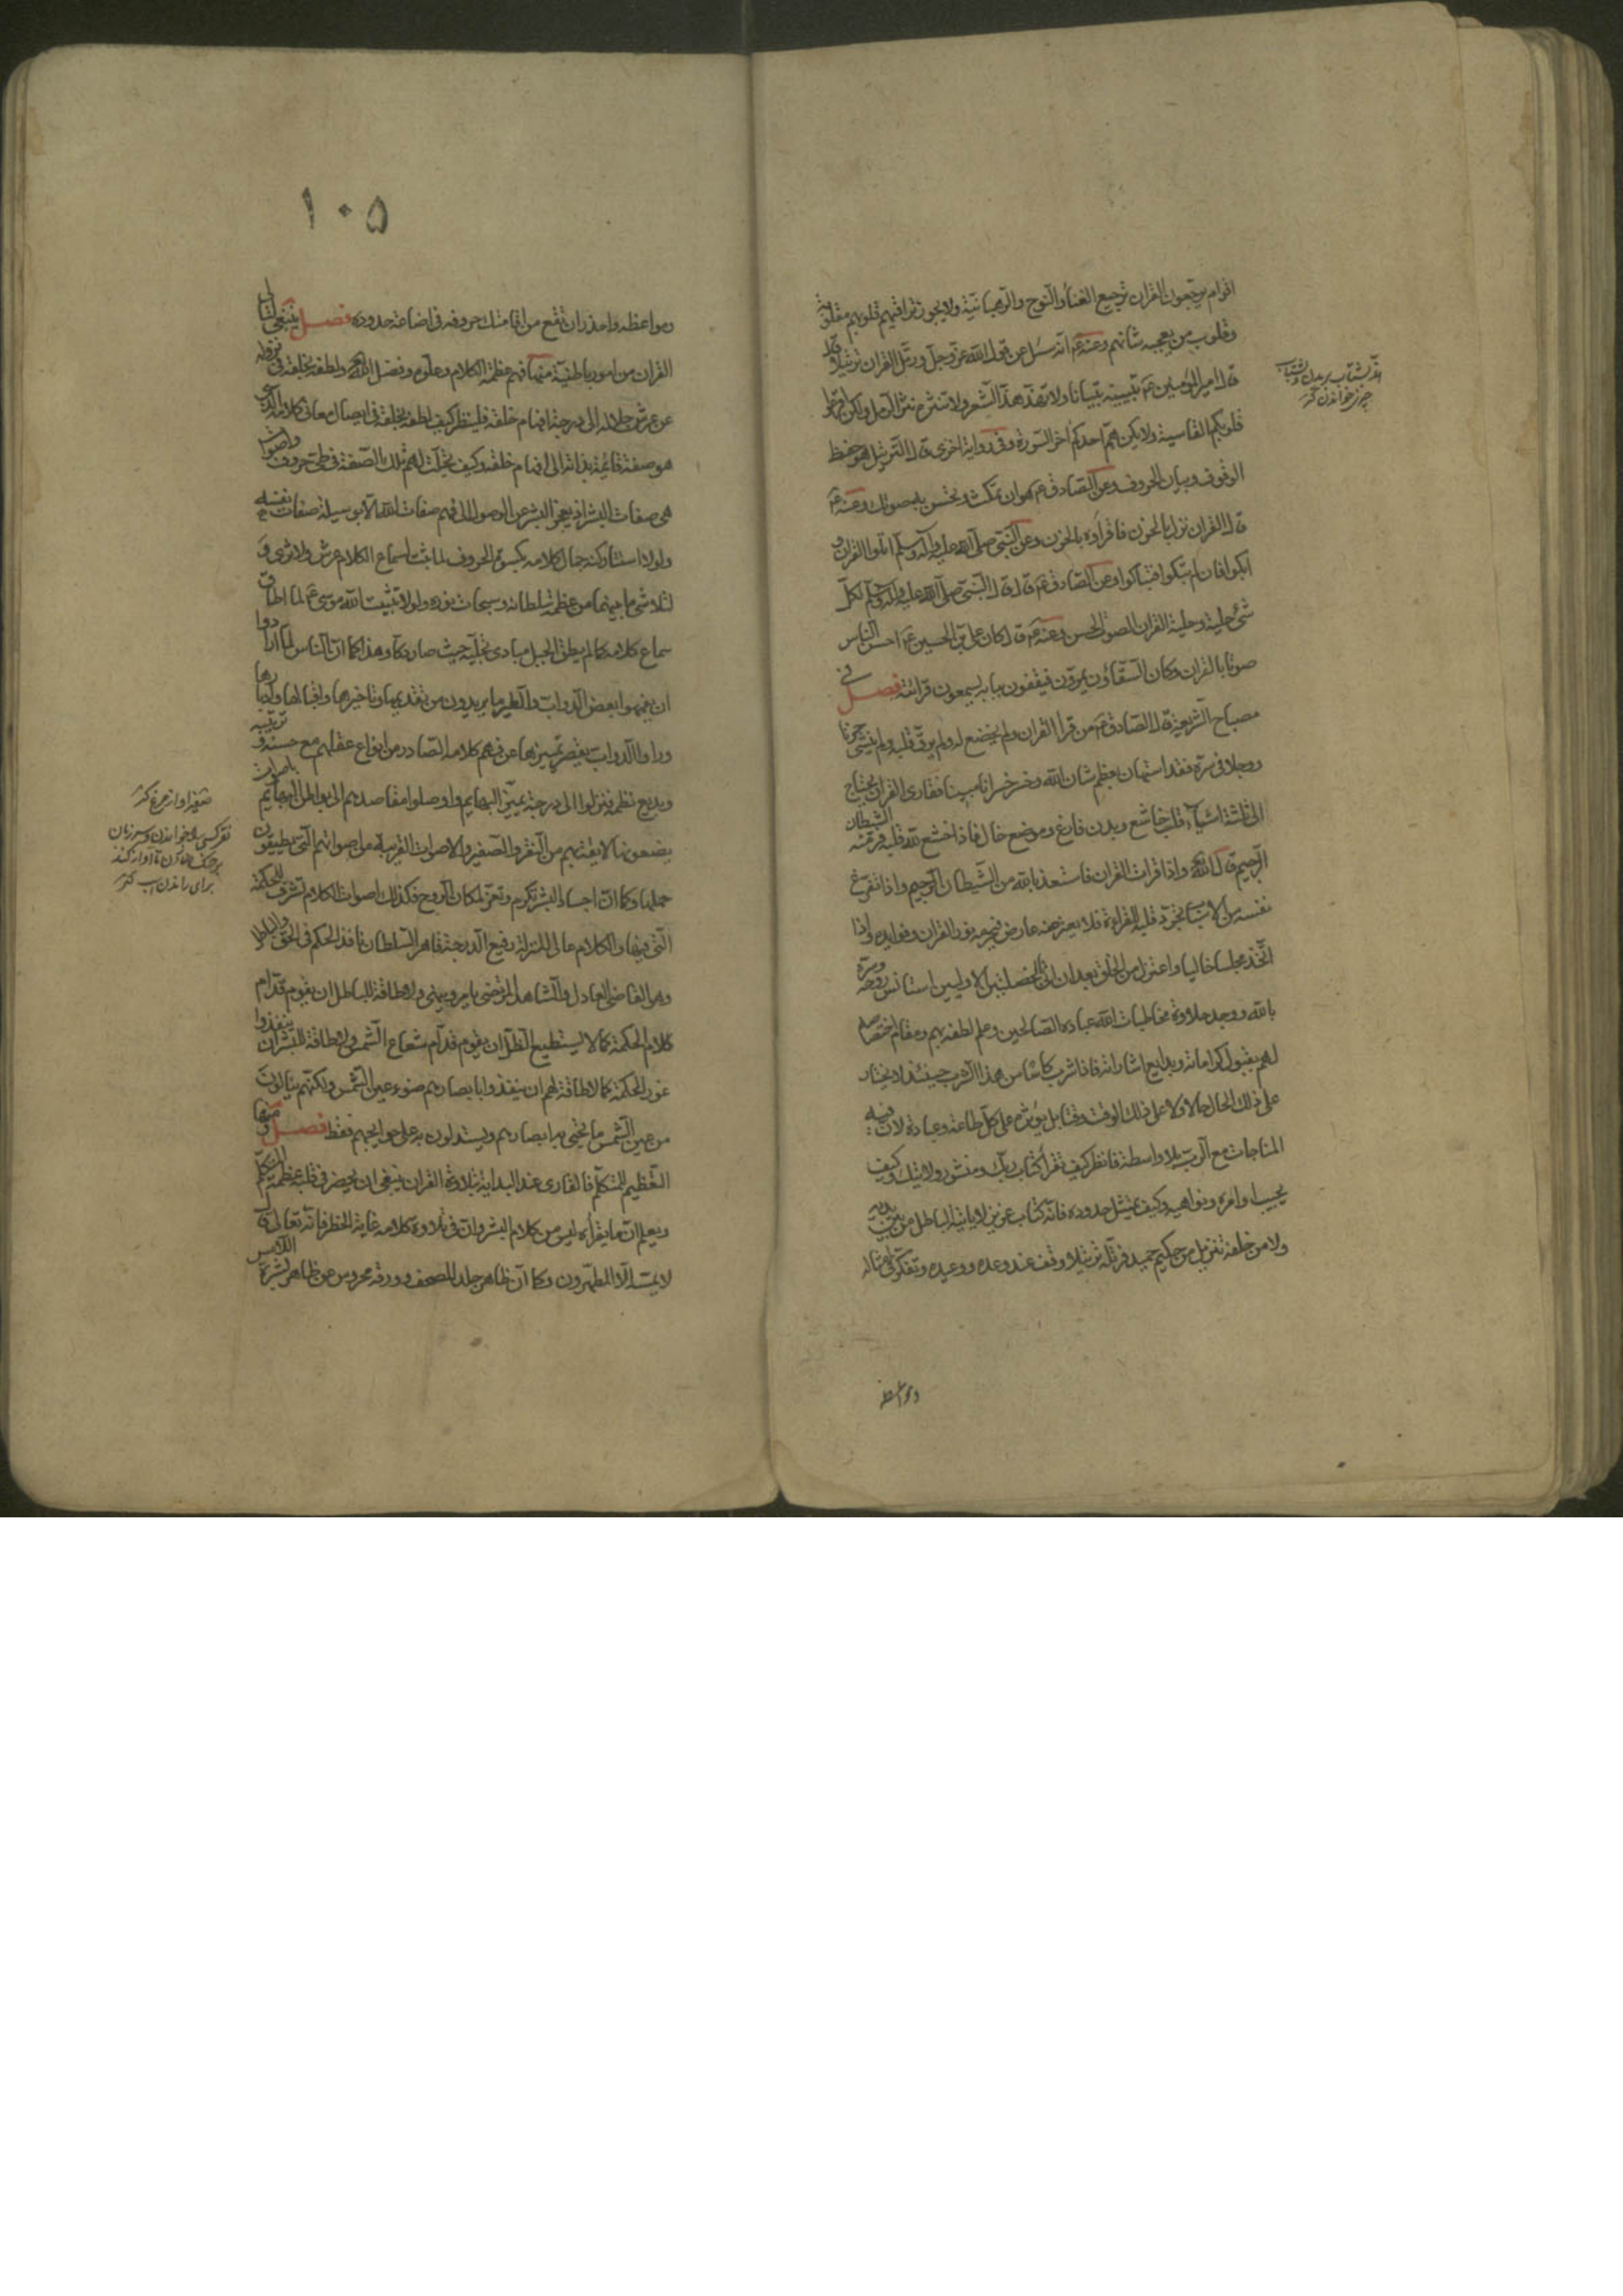 اقوام يرجّعون القران ترجيع الغناء والنوح والرهبانية ولا يجوز تراقيهم قلوبهم مقلوبة
وقلوب من يعجبه شانهم وعنه ع انه سئل عن قول الله عز وجل ورتل القران ترتيلا قال
قال امير المؤمنين ع تبيينه تبيانا ولا تهذه هذ الشعر ولا تنثره نثر الرمل ولكن اقرعوا
قلوبكم القاسية ولا يكن هم احدكم اخر السورة وفي رواية اخرى قال الترتيل هو حفظ
الوقوف وبيان الحروف وعن الصادق ع هو ان تمكث وتحسن به صوتك وعنه ع
قال القران نزل بالحزن فاقراوه بالحزن وعن النبي صلى الله عليه وآله وسلم اتلوا القران و
ابكوا فان لم تبكوا فتباكوا وعن الصادق ع قال قال النبي صلى الله عليه وآله وسلم لكل
شئ حلية وحلية القران الصوت الحسن وعنه ع قال كان علي بن الحسين ع احسن الناس
صوتا بالقران وكان السقاؤن يمرون فيقفون ببابه يسمعون قرائته فصل في
مصباح الشريعة قال الصادق ع من قرا القران ولم يخضع له ولم يرق قلبه ولم ينشئ حزنا
ووجلا في سره فقد استهان بعظم شان الله وخسر خسرانا مبينا فقارئ القران يحتاج
الى ثلثة اشياء قلب خاشع وبدن فارغ وموضع خال فاذا خشع لله قلبه فر منه الشيطان
الرجيم قال الله تع واذا قرات القران فاستعذ بالله من الشيطان الرجيم واذا تفرغ
نفسه من الاسباب تجرد قلبه للقراءة فلا يعترضه عارض فيحرمه نور القران وفوايده واذا
اتخذ مجلسا خاليا واعتزل من الخلق بعد ان اتى بالخصلتين الاوليين استانس روحه وسره
بالله ووجد حلاوة مخاطبات الله عباده الصالحين وعلم لطفه بهم ومقام اختصاصه
لهم بقبول كراماته وبدايع اشاراته فاذا شرب كاسا من هذا الشرب حينئذ لا يختار
على ذلك الحال حالا ولا على ذلك الوقت وقتا بل يؤثره على كل طاعة وعبادة لان فيه
المناجات مع الرب بلا واسطة فانظر كيف تقرأ كتاب ربك ومنشور ولايتك وكيف
يجيب اوامره ونواهيه وكيف تمتثل حدوده فانه كتاب عزيز لا ياتيه الباطل من بين يديه
ولا من خلفه تنزيل من حكيم حميد فرتله ترتيلا وقف عند وعده ووعيده وتفكر في امثاله
ومواعظه
ومواعظه واحذر ان تقع من اقامتك حروفه في اضاعة حدوده فصل ينبغي لتالي
القران من امور باطنية منها فهم عظمة الكلام وعلوه وفضل الله تع ولطفه بخلقه في نزوله
عن عرش جلاله الى درجة افهام خلقه فلينظر كيف لطف بخلقه في ايصال معاني كلامه الذي
هو صفة قائمة بذاته الى افهام خلقه وكيف تجلت لهم تلك الصفة في طي حروف واصوات
هي صفات البشر اذ يعجز البشر عن الوصول الى فهم صفات الله الا بوسيلة صفات نفسه
ولولا استتار كنه جمال كلامه بكسوة الحروف لما ثبت لسماع الكلام عرش ولا ثرى و
لتلاشى ما بينهما من عظمة سلطانه وسبحات نوره ولولا تثبيت الله موسى ع لما اطاق
سماع كلامه كما لم يطق الجبل مبادى تجليه حيث صار دكا وهذا كما ان الناس لما ارادوا
ان يفهموا بعض الدواب والطير ما يريدون من تقديمها وتاخيرها واقبالها وادبارها
وراوا الدواب يقصر تمييزها عن فهم كلامهم الصادر من انواع عقلهم مع حسنه وترتيبه
وبديع نظمه فنزلوا الى درجة تميز البهايم واوصلوا مقاصدهم الى بواطن البهايم باصوات
يضعونها لايقة بهم من النقر والصفير والاصوات القريبة من اصواتهم التي يطيقون
حملها وكما ان اجساد البشر تكرم وتعز لمكان الروح فكذلك اصوات الكلام تشرف للحكمة
التي فيها والكلام عالي المنزلة رفيع الدرجة قاهر السلطان نافذ الحكم في الحق والباطل
وهو القاضي العادل والشاهد المرتضى يامر وينهى ولا طاقة للباطل ان يقوم قدام
كلام الحكمة كما لا يستطيع الظل ان يقوم قدام شعاع الشمس ولا طاقة للبشر ان ينفذوا
غور الحكمة كما لا طاقة لهم ان ينفذوا بابصارهم ضوء عين الشمس ولكنهم ينالون
من عين الشمس ما تحيى به ابصارهم ويستدلون به على حوايجهم فقط فصل ومنها
التعظيم للمتكلم فالقارى عند البداية بتلاوة القران ينبغي ان يحضر في قلبه عظمة المتكلم
ويعلم ان ما يقرأه ليس من كلام البشر وان في تلاوة كلامه غاية الخطر فانه تعالى قال
لا يمسه الا المطهرون وكما ان ظاهر جلد المصحف وورقه محروس عن ظاهر بشرة اللامس
١٠٥
صفير آواز مرغ كنز